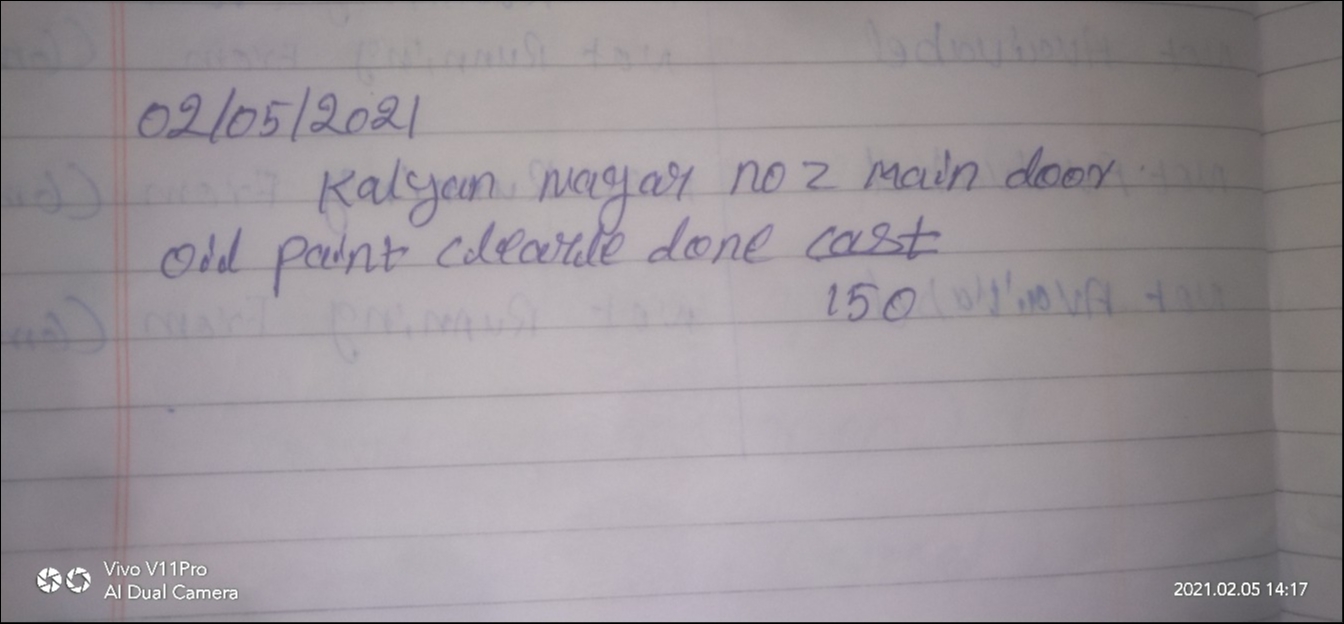 02/05/2021
Kalyan nagar no 2 main door
Old paint cleande done cast
150
Vivo V11Pro
AI Dual Camera
2021.02.05 14:17